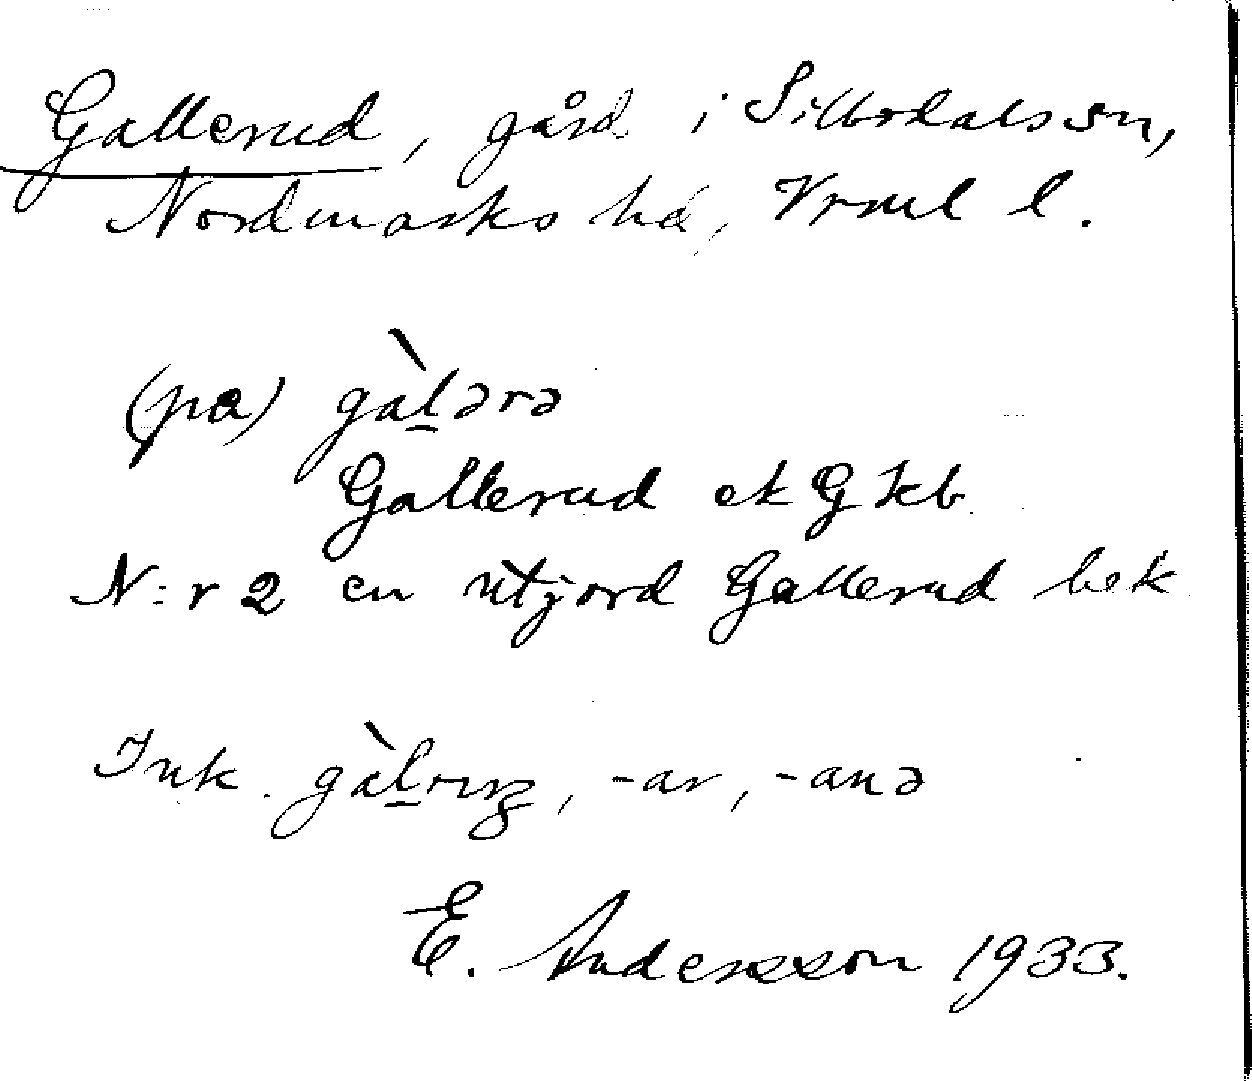 Gallerud, gård i Sillbodals sn,
Nordmarks hd, Vrml l.
(pa) gàl̠ərə
Gallerud ek G Kb
N:r 2 en utjord Gallerud bek
Ink. gàl̠rıŋ, -ar, -anə
E. Andersson 1933.